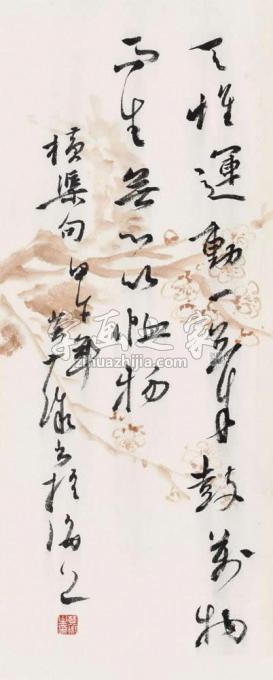 天惟運動一氣鼓萬物
而生無心以恤物
橫渠句甲午年書於海上
字画之家
zihuazhijia.com